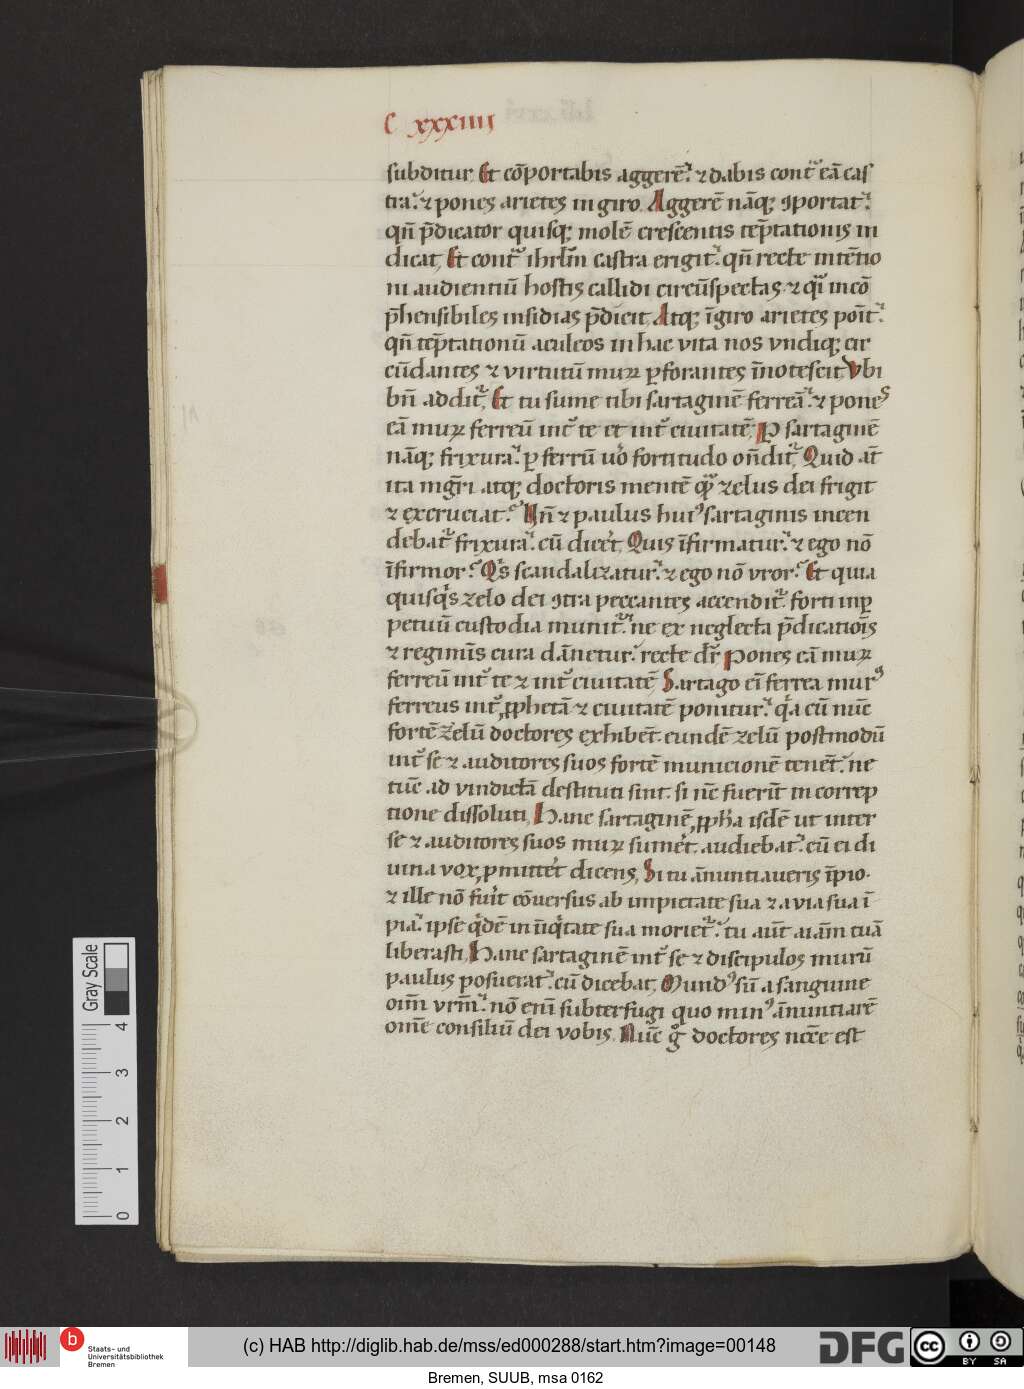 C xxxiiii
subditur. Et cōportabis aggerē. ⁊ dabis contᷓ eā cas
tra. ⁊ pones arietes in giro. Aggerē nāq; ꝯportat.
qn̄ p̄dicator quisq; molē crescentis tēp̄tationis in
dicat. Et contᷓ ihrlm̄ castra erigit. qn̄ recte intētio
ni audientiū hostis callidi circūspectas ⁊ qᷓi incō
p̄hensibiles insidias p̄dicit. Atq; īgiro arietes poīt.
qn̄ tēp̄tationū aculeos in hac vita nos vndiq; cir
cūdantes ⁊ virtutū muꝝ ꝑforantes īnotescit. Vbi
bn̄ addit᷑. Et tu sume tibi sartaginē ferreā. ⁊ pones
eā muꝝ ferreū int᷑ te et int᷑ ciuitatē. P sartaginē
nāq; frixura. ꝑ ferrū uo̊ fortitudo on̄dit᷑. Quid aūt
ita mgr̄i atq; doctoris mentē qᷓ zelus dei frigit
⁊ excruciat. Un̄ ⁊ paulus huiꝰ sartaginis incen
debat᷑ frixura. cū dicet. Quis īfirmatur. ⁊ ego nō
īfirmor. Qⁱs scandalizatur. ⁊ ego nō vror. Et quia
quisqⁱs zelo dei ꝯtra peccantes accendit᷑. forti inꝑ
petuū custodia munit᷑. ne ex neglecta p̄dicatiois
⁊ regimīs cura dānetur. recte dr̄. Pones eā muꝝ
ferreū int᷑ te ⁊ int᷑ ciuitatē. Sartago eī ferrea murꝰ
ferreus int᷑ ꝓphetā ⁊ ciuitatē ponitur. qᷓa cū nūc
fortē zelū doctores exhibēt. eundē zelū postmodū
int᷑ se ⁊ auditores suos fortē municionē tenēt. ne
tūc ad vindictā destituti sint. si nūc fuerīt in correp
tione dissoluti. Hanc sartaginē ꝓpha isdē ut inter
se ⁊ auditores suos muꝝ sumet. audiebat. cū ei di
uina vox ꝓmittet dicens. Si tu ānuntiaueris īpio.
⁊ ille nō fuit cōuersus ab impietate sua ⁊ a via sua ī
pia. ipse qⁱdē in īiqⁱtate sua moriet᷑. tu aūt aīam tuā
liberasti. Hanc sartaginē int᷑ se ⁊ discipulos murū
paulus posuerat. cū dicebat. Mundꝰ sū a sanguine
oīm vrm̄. nō enī subterfugi quo minꝰ ānuntiarē
omē consiliū dei vobis. Nūc g̊ doctores ncēe est
Gray Scale
4
3
2
1
0
b
Staats- und
Universitätsbibliothek
Bremen
(c) HAB http://diglib.hab.de/mss/ed000288/start.htm?image=00148
DFG
cc
BY SA
Bremen, SUUB, msa 0162